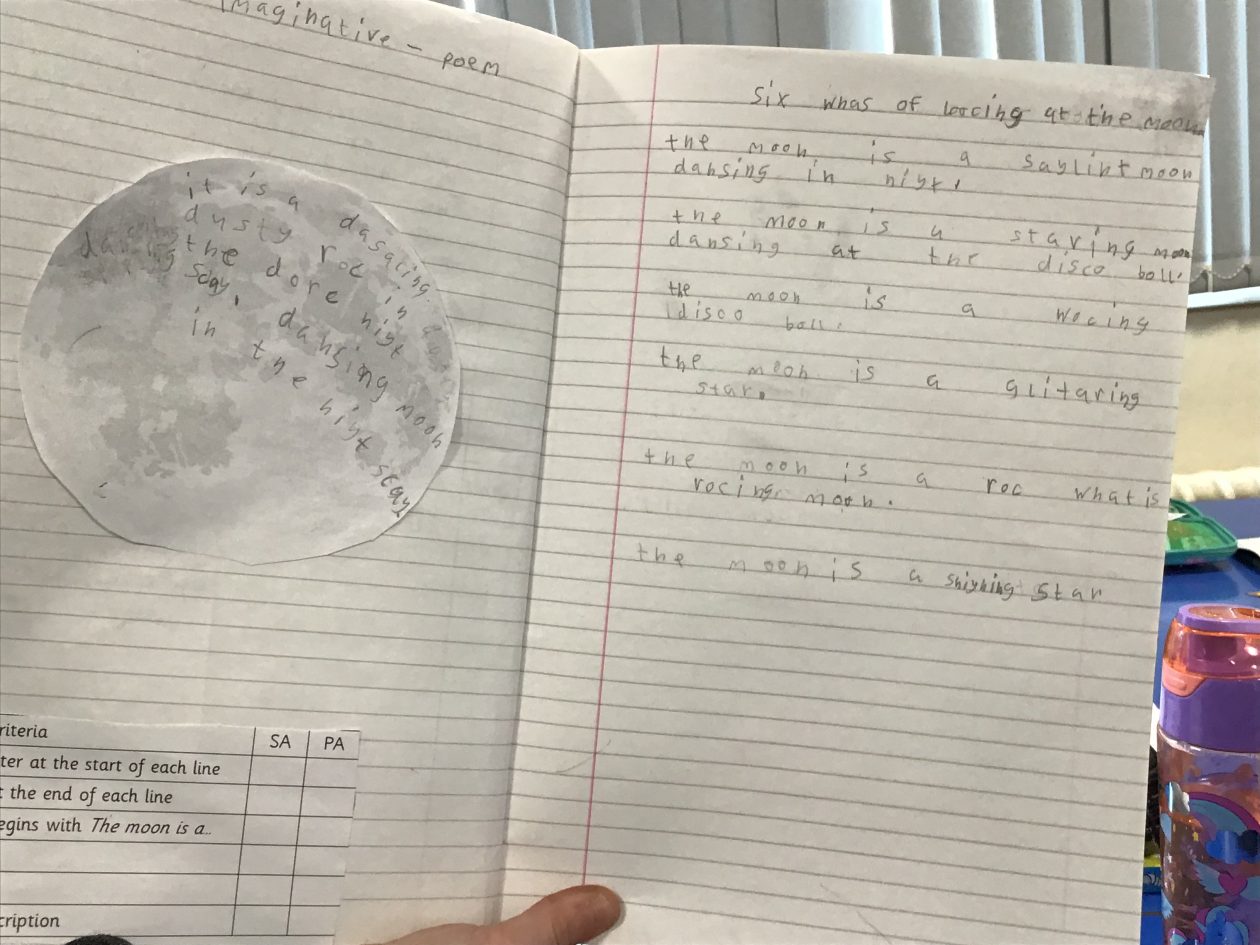 Imaginative - poem
it is a dasating
dusty roc in a
dansing the dore night
scay, dansing moon
in the night scay
Criteria SA PA
ter at the start of each line
t the end of each line
egins with The moon is a..
cription
six whas of loocing at the moon
the moon is a saylint moon
dansing in night.
the moon is a staring moon
dansing at the disco ball.
the moon is a wocing
disco ball.
the moon is a glitaring
star.
the moon is a roc what is
rocing moon.
the moon is a shighing star